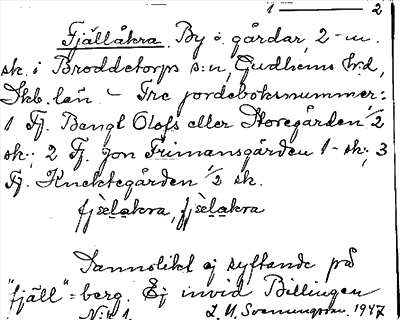 1 — 2
Fjällåkra. By o. gårdar, 2 - m.
sk. i Broddetorps s:n, Gudhems h:d,
Skb. län. - Tre jordeboksnummer:
1 Fj. Bengt Olofs eller Storegården 1/2
sk.; 2 Fj. Jon Frimansgården 1 - sk; 3
Fj. Knektegården 1/2 sk.
fjselakra, fjselakra
Sannolikt ej syftande på
"fjäll" = berg. Ej invid Billingen